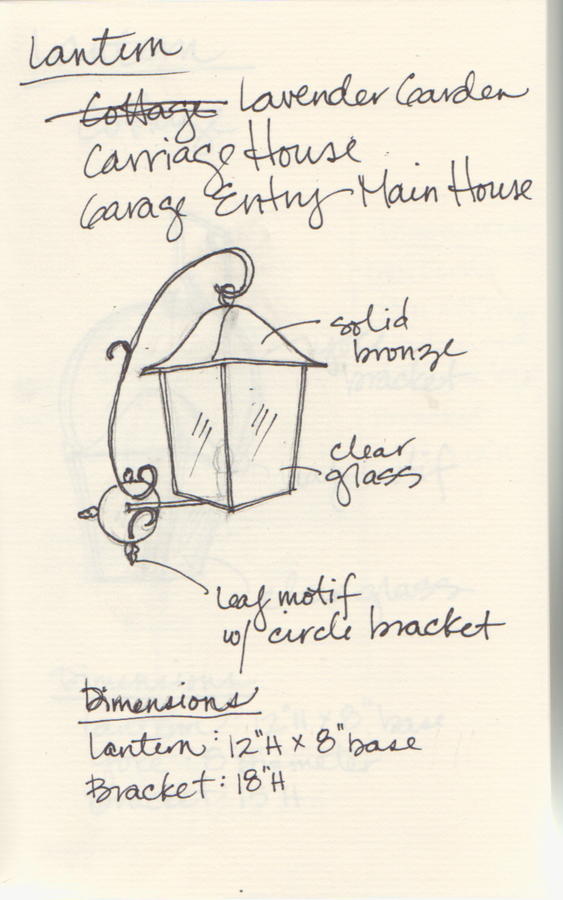 Lantern
Cottage Lavender Garden
Carriage House
Garage Entry Main House
solid
bronze
clear
glass
leaf motif
w/ circle bracket
Dimensions
Lantern: 12"H x 8"base
Bracket: 18"H